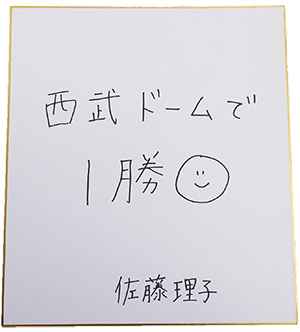 西武ドームで
1勝☺
佐藤理子